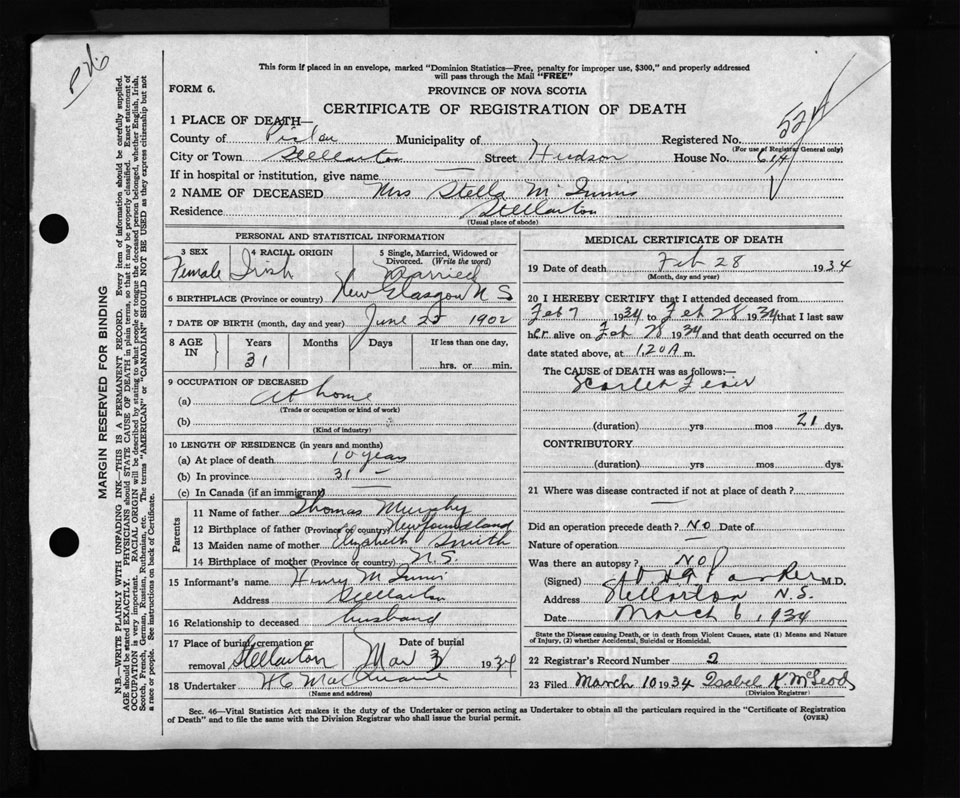 This form if placed in an envelope, marked "Dominion Statistics—Free, penalty for improper use, $300," and properly addressed
will pass through the Mail "FREE"
FORM 6.
PROVINCE OF NOVA SCOTIA
CERTIFICATE OF REGISTRATION OF DEATH
1 PLACE OF DEATH—
County of Pictou Municipality of Registered No.
(For use of Registrar General only)
City or Town Stellarton Street Hudson House No. 614
If in hospital or institution, give name —
2 NAME OF DECEASED Mrs Stella McInnis
Residence Stellarton
(Usual place of abode)
PERSONAL AND STATISTICAL INFORMATION
3 SEX Female
4 RACIAL ORIGIN Irish
5 Single, Married, Widowed or Divorced. (Write the word) Married
6 BIRTHPLACE (Province or country) New Glasgow N S
7 DATE OF BIRTH (month, day and year) June 25 1902
8 AGE IN Years 31 Months Days If less than one day, hrs. or min.
9 OCCUPATION OF DECEASED
(a) At home
(Trade or occupation or kind of work)
(b)
(Kind of industry)
10 LENGTH OF RESIDENCE (in years and months)
(a) At place of death 10 years
(b) In province 31 —
(c) In Canada (if an immigrant)
Parents
11 Name of father Thomas Murphy
12 Birthplace of father (Province or country) Newfoundland
13 Maiden name of mother Elizabeth Smith
14 Birthplace of mother (Province or country) N.S.
15 Informant's name Henry McInnis
Address Stellarton
16 Relationship to deceased husband
17 Place of burial, cremation or removal Stellarton
Date of burial Mar 3 1934
18 Undertaker
(Name and address)
MEDICAL CERTIFICATE OF DEATH
19 Date of death Feb 28 1934
(Month, day and year)
20 I HEREBY CERTIFY that I attended deceased from
Feb 7 1934 to Feb 28 1934 that I last saw
her alive on Feb 28 1934 and that death occurred on the
date stated above, at 120 A m.
The CAUSE of DEATH was as follows:—
Scarlet Fever
(duration) yrs mos 21 dys.
CONTRIBUTORY
(duration) yrs mos dys.
21 Where was disease contracted if not at place of death?
—
Did an operation precede death? No Date of
Nature of operation —
Was there an autopsy? NO
(Signed) Parker M.D.
Address Stellarton N.S.
Date March 6, 1934
State the Disease causing Death, or in death from Violent Causes, state (1) Means and Nature
of Injury, (2) whether Accidental, Suicidal or Homicidal.
22 Registrar's Record Number 2
23 Filed March 10 1934 Isabel K. McLeod
(Division Registrar)
Sec. 46—Vital Statistics Act makes it the duty of the Undertaker or person acting as Undertaker to obtain all the particulars required in the "Certificate of Registration
of Death" and to file the same with the Division Registrar who shall issue the burial permit. (OVER)
MARGIN RESERVED FOR BINDING
N.B.—WRITE PLAINLY WITH UNFADING INK—THIS IS A PERMANENT RECORD. Every item of information should be carefully supplied.
AGE should be stated EXACTLY. PHYSICIANS should STATE CAUSE OF DEATH in plain terms, so that it may be properly classified. Exact statement of
OCCUPATION is very important. RACIAL ORIGIN will be described by stating to what people or tongue the deceased person belonged, whether English, Irish,
Scotch, French, German, Russian, Ruthenian, etc. The terms "AMERICAN" or "CANADIAN" SHOULD NOT BE USED as they express citizenship but not
a race or people. See instructions on back of Certificate.